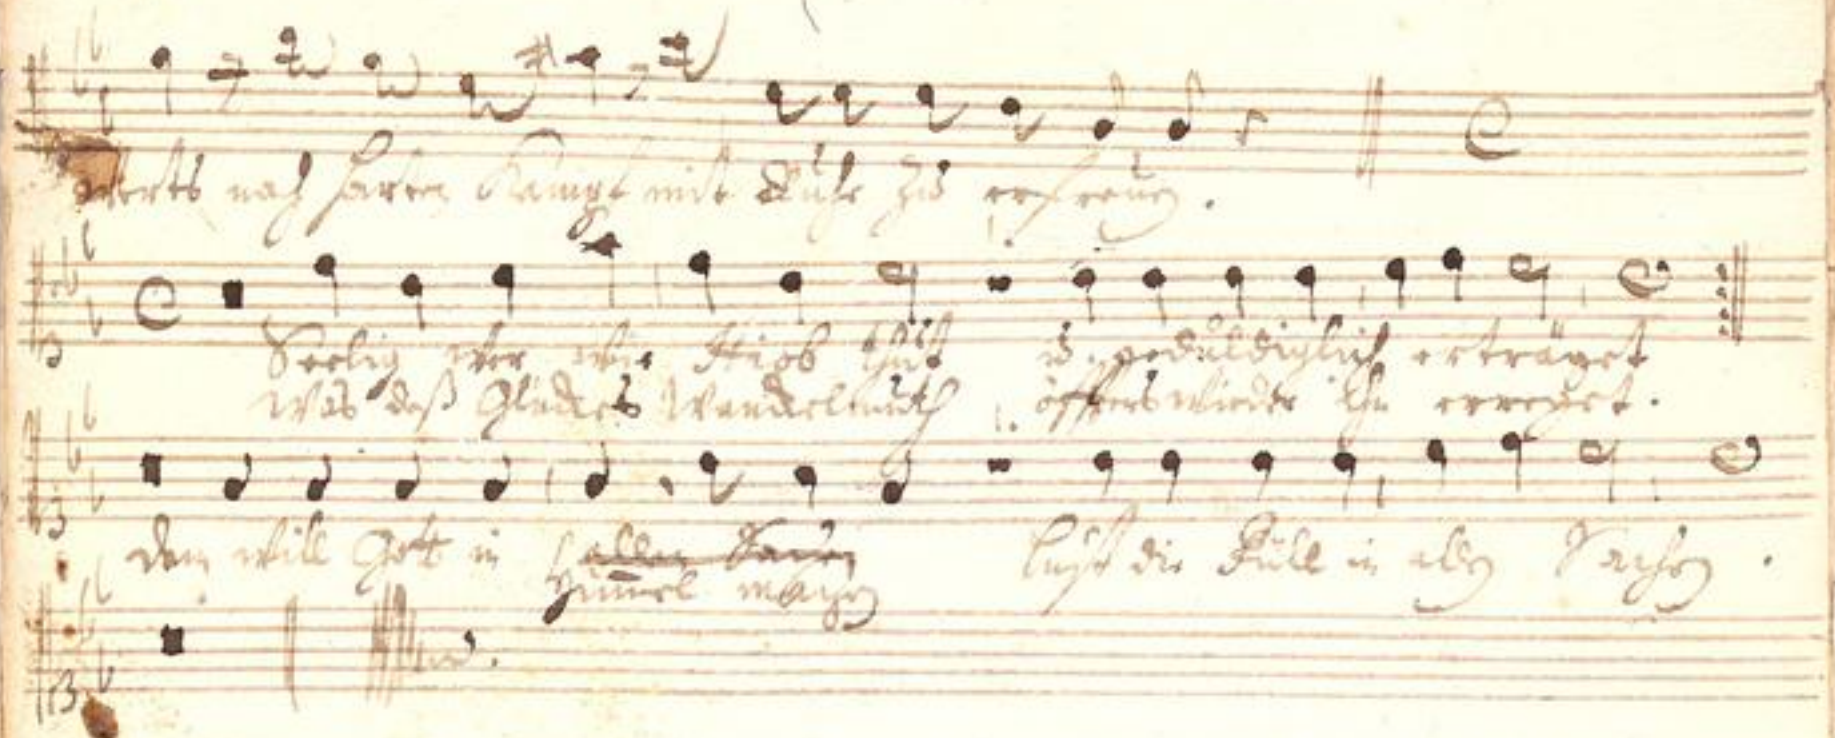 werts nach harten Kampf mit Ruhe zu erfreuen.
Seelig wer wie Hiob thut u. geduldiglich erträget
Was deß Glückes Wanckelmuth öffters wieder ihn erreget.
dem will Gott in allen Sachen lust die Füll in allen Sachen.
Himmel machen